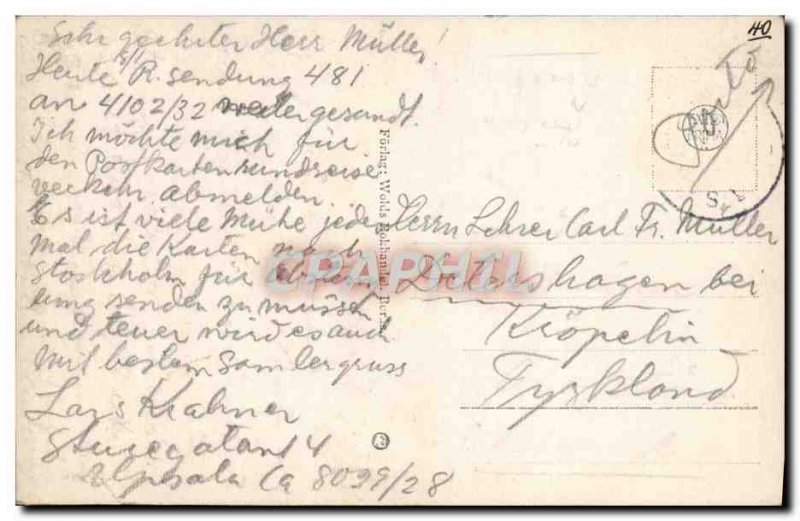 40
Sehr geehrter Herr Müller!
Heute 5/1 R. sendung 481
an 4102/32 weitergesandt.
Ich möchte mich für
den Postkartenrundreise
verkehr abmelden.
Es ist viele Mühe jedes
mal die Karten nach
Stockholm für
lung senden zu müssen
und teuer wird es auch
Mit bestem Sammlergruss
Lars
Sturegatan 4
Upsala Ca 8099/28
Förlag: Wolds Bokhandel,
Herrn Lehrer Carl Fr. Müller
bei
Kröpelin
Tyskland
CPAPHIL